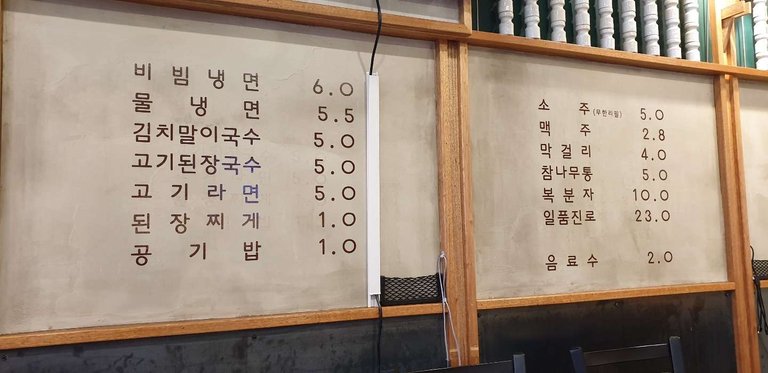 비빔냉면 6.0
물냉면 5.5
김치말이국수 5.0
고기된장국수 5.0
고기라면 5.0
된장찌게 1.0
공기밥 1.0
소주(무한리필) 5.0
맥주 2.8
막걸리 4.0
참나무통 5.0
복분자 10.0
일품진로 23.0
음료수 2.0